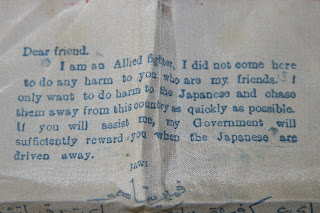 Dear friend.
I am an Allied fighter, I did not come here
to do any harm to you who are my friends. I
only want to do harm to the Japanese and chase
them away from this country as quickly as possible.
If you will assist me, my Government will
sufficiently reward you when the Japanese are
driven away.
JAWI.